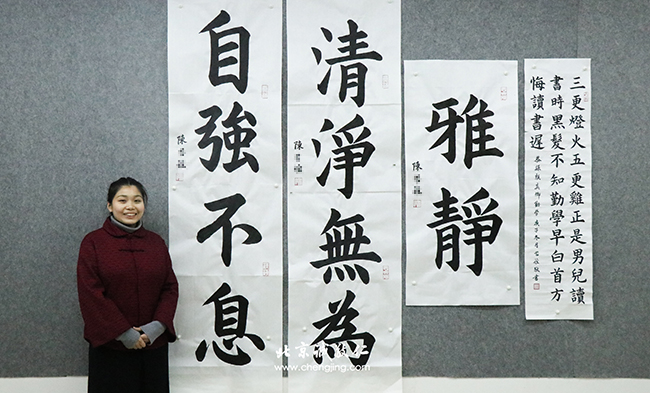 自強不息
清淨無為
雅靜
三更燈火五更雞正是男兒讀
書時黑髮不知勤學早白首方
悔讀書遲
北京誠敬仁
www.chengjing.com